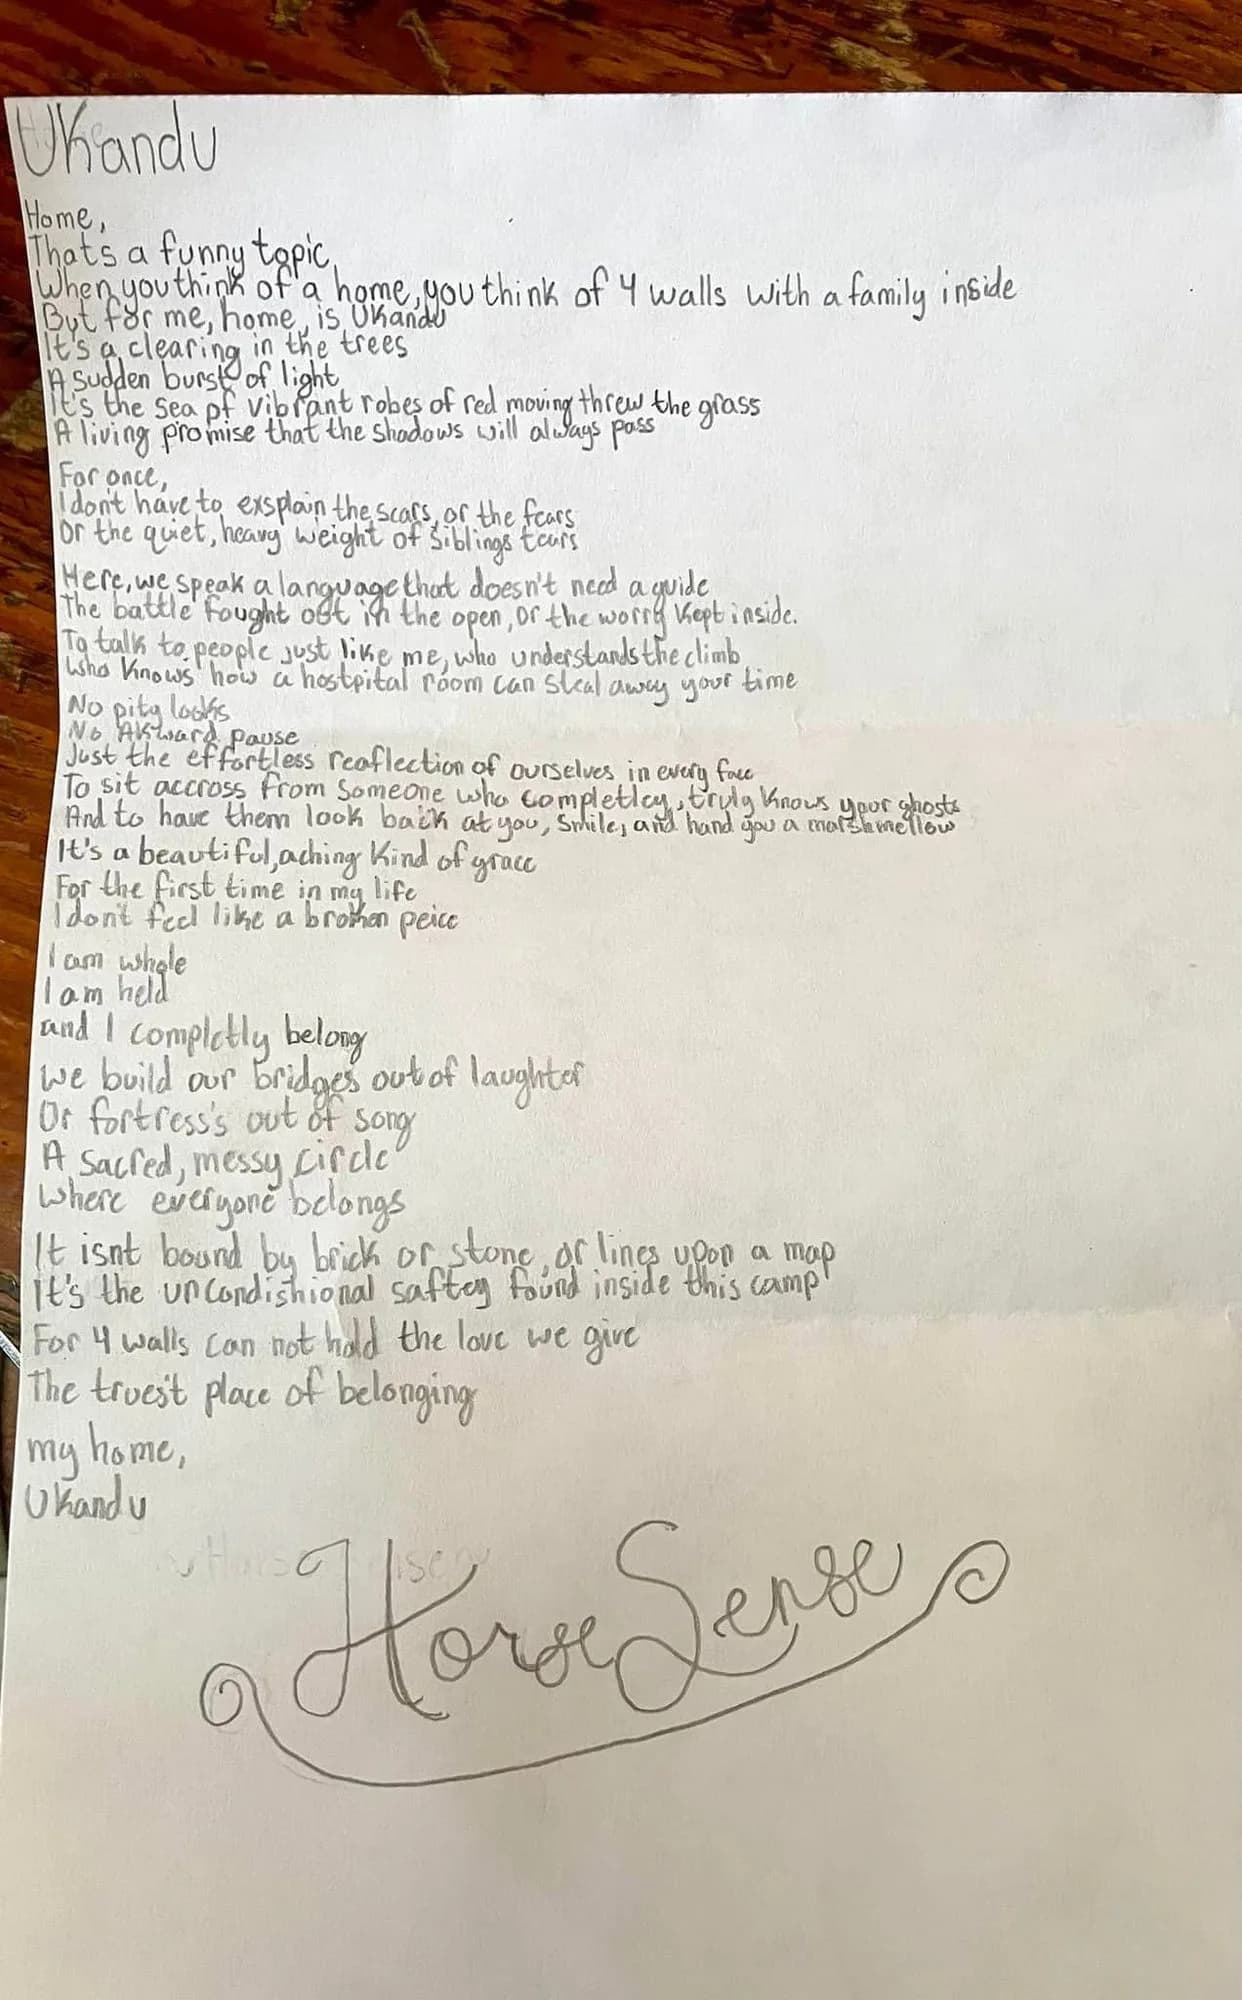 Ukandu
Home,
Thats a funny topic
When you think of a home, you think of 4 walls with a family inside
But for me, home, is Ukandu
It's a clearing in the trees
A sudden burst of light
It's the sea of vibrant robes of red moving threw the grass
A living promise that the shadows will always pass
For once,
I don't have to exsplain the scars, or the fears
Or the quiet, heavy weight of siblings tears
Here, we speak a language that doesn't need a guide
The battle fought out in the open, or the worry kept inside.
To talk to people just like me, who understands the climb
Who knows how a hostpital room can steal away your time
No pity looks
No Akward pause
Just the effortless reaflection of ourselves in every face
To sit accross from someone who completley, truly knows your ghosts
And to have them look back at you, smile, and hand you a marshmellow
It's a beautiful, aching kind of grace
For the first time in my life
I don't feel like a broken peice
I am whole
I am held
and I completly belong
We build our bridges out of laughter
Or fortress's out of song
A sacred, messy circle
Where everyone belongs
It isnt bound by brick or stone, or lines upon a map
It's the uncondishional saftey found inside this camp
For 4 walls can not hold the love we give
The truest place of belonging
my home,
Ukandu
Horse Sense